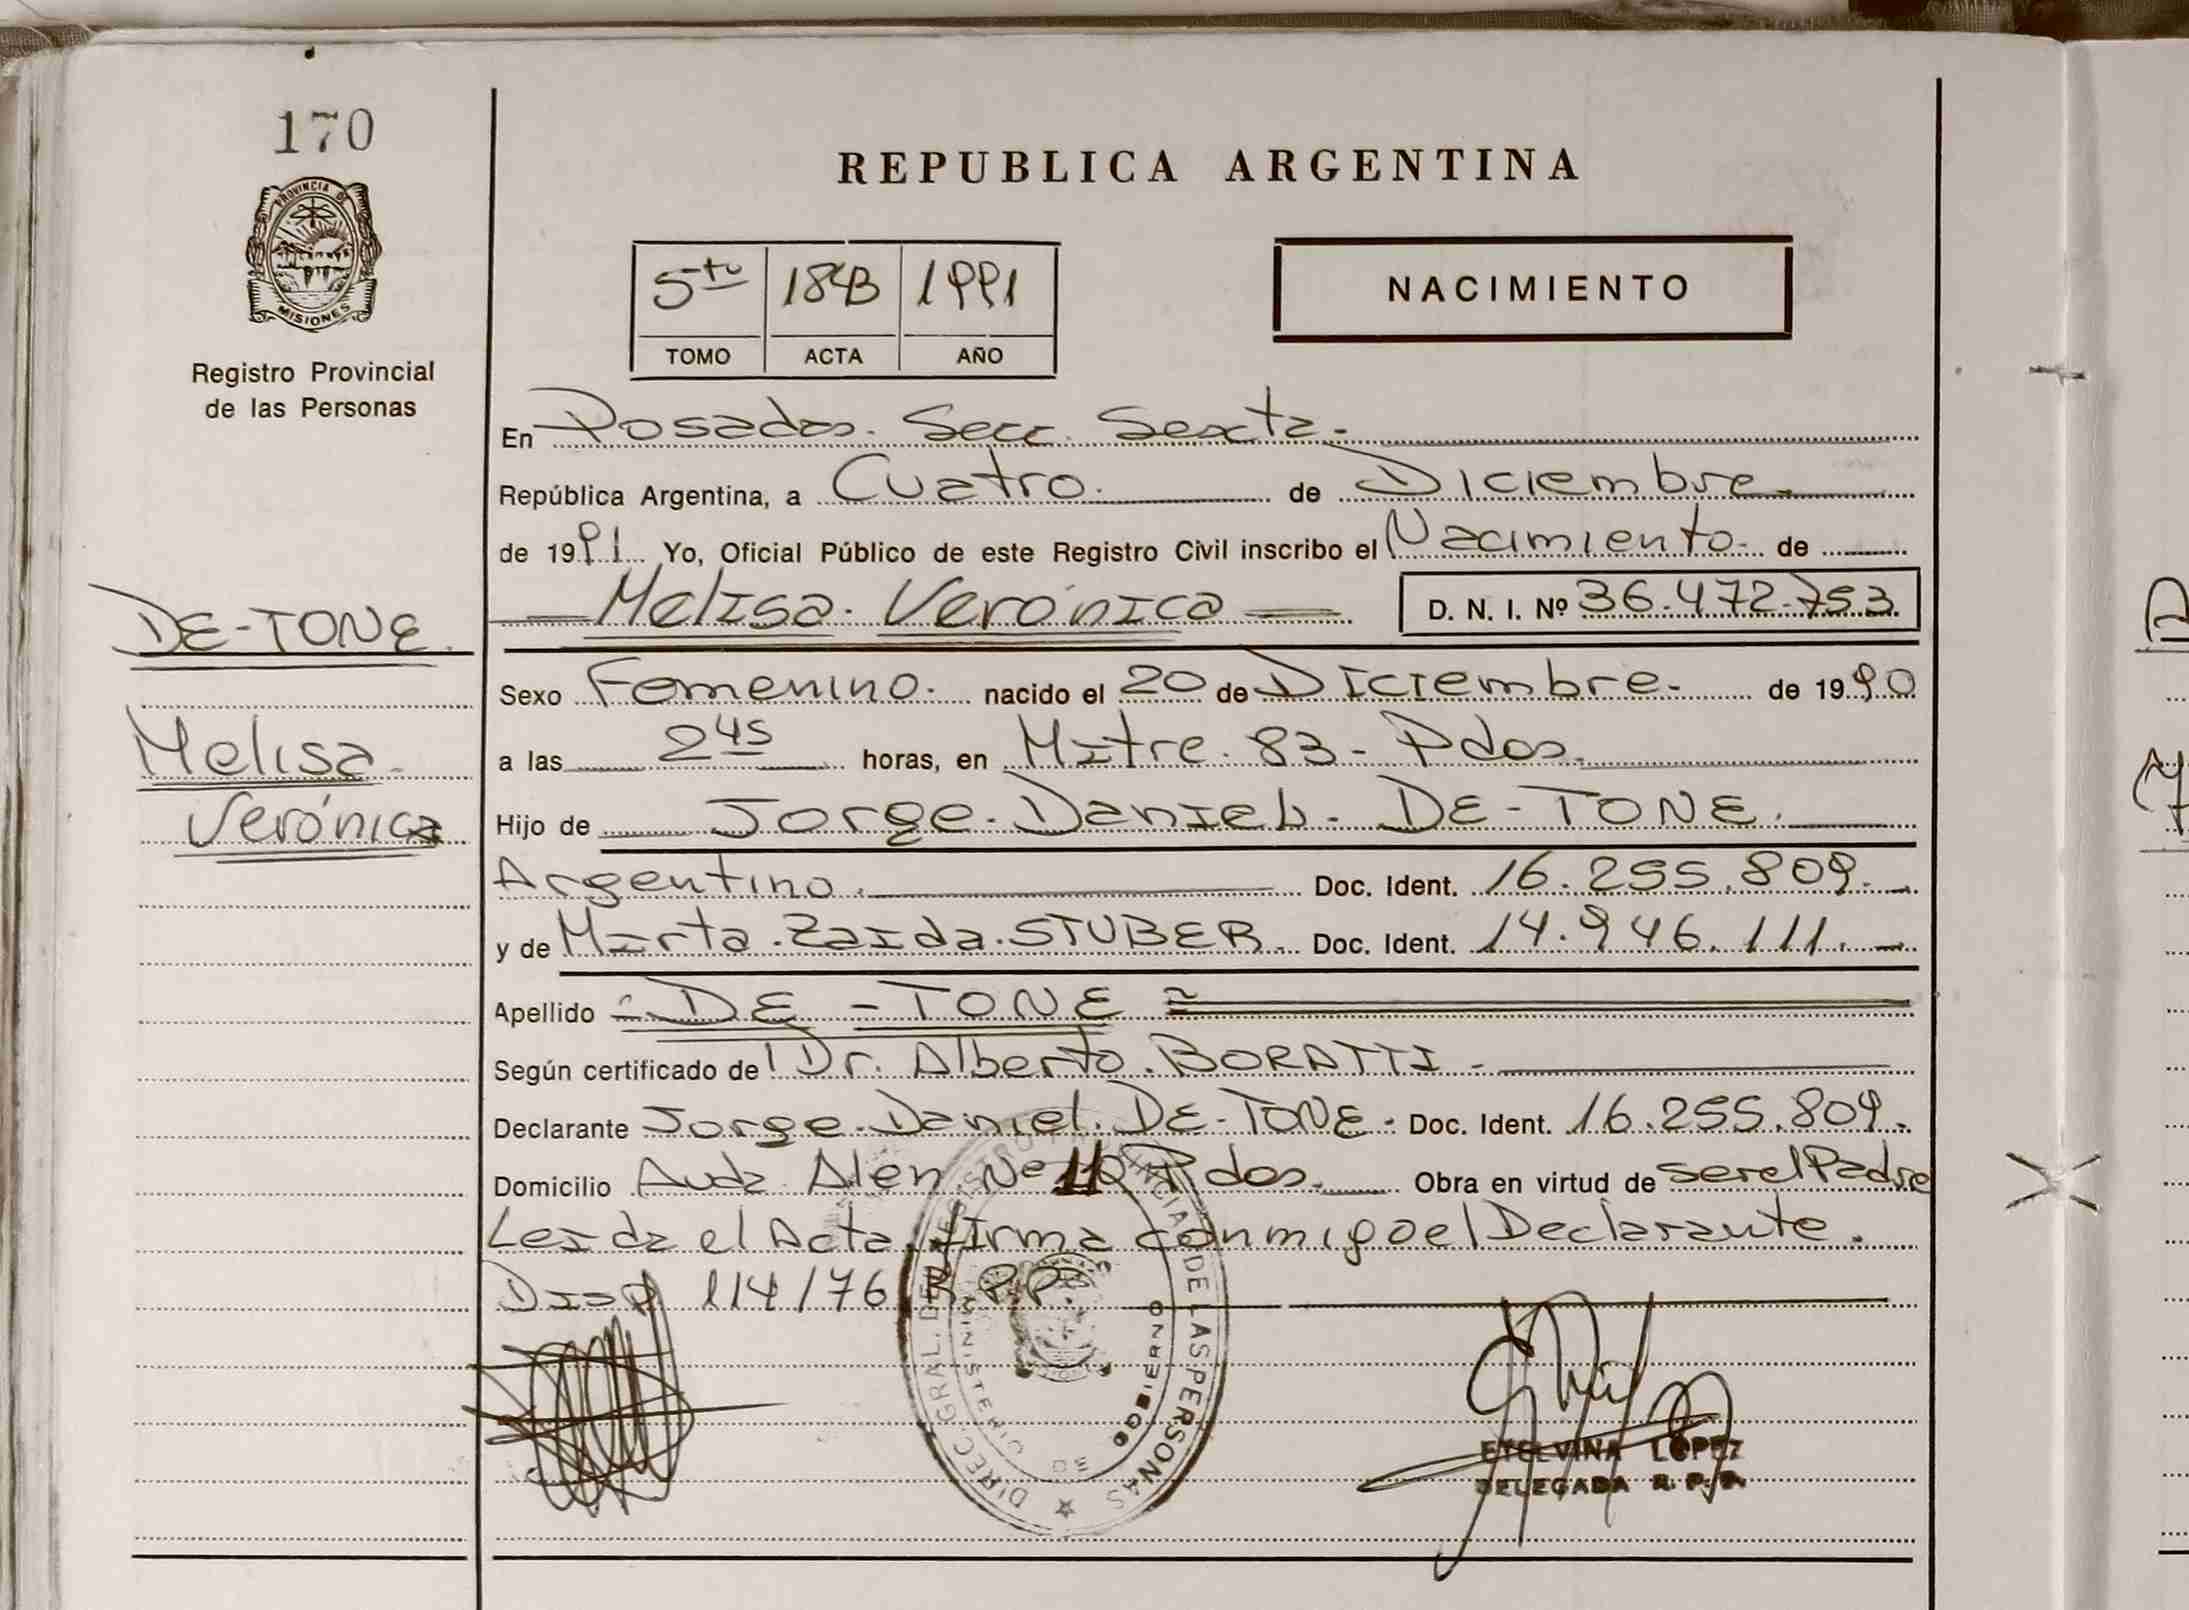 170
PROVINCIA DE
MISIONES
Registro Provincial
de las Personas
DE-TONE.
Melisa
Verónica
REPUBLICA ARGENTINA
5to 1843 1991
TOMO ACTA AÑO
NACIMIENTO
En Posadas. Secc. Sexta.
República Argentina, a Cuatro. de Diciembre.
de 1991 Yo, Oficial Público de este Registro Civil inscribo el Nacimiento. de
Melisa. Verónica D. N. I. Nº 36.472.753
Sexo Femenino. nacido el 20 de Diciembre. de 1990
a las 2 45 horas, en Mitre. 83 - Pdas.
Hijo de Jorge. Daniel. DE-TONE.
Argentino. Doc. Ident. 16.255.809.
y de Mirta. Zaida. STUBER. Doc. Ident. 14.946.111.
Apellido DE-TONE
Según certificado de Dr. Alberto. BORATTI
Declarante Jorge. Daniel. DE-TONE. Doc. Ident. 16.255.809.
Domicilio Avda Alen Nº Pdas. Obra en virtud de ser el Padre
Leida el Acta, firma conmigo el Declarante.
Disp 114/76 R.P.P.
DIREC. GRAL. DEL REGISTRO PROVINCIAL DE LAS PERSONAS
MINISTERIO DE GOBIERNO
ETELVINA LOPEZ
DELEGADA R. P. P.